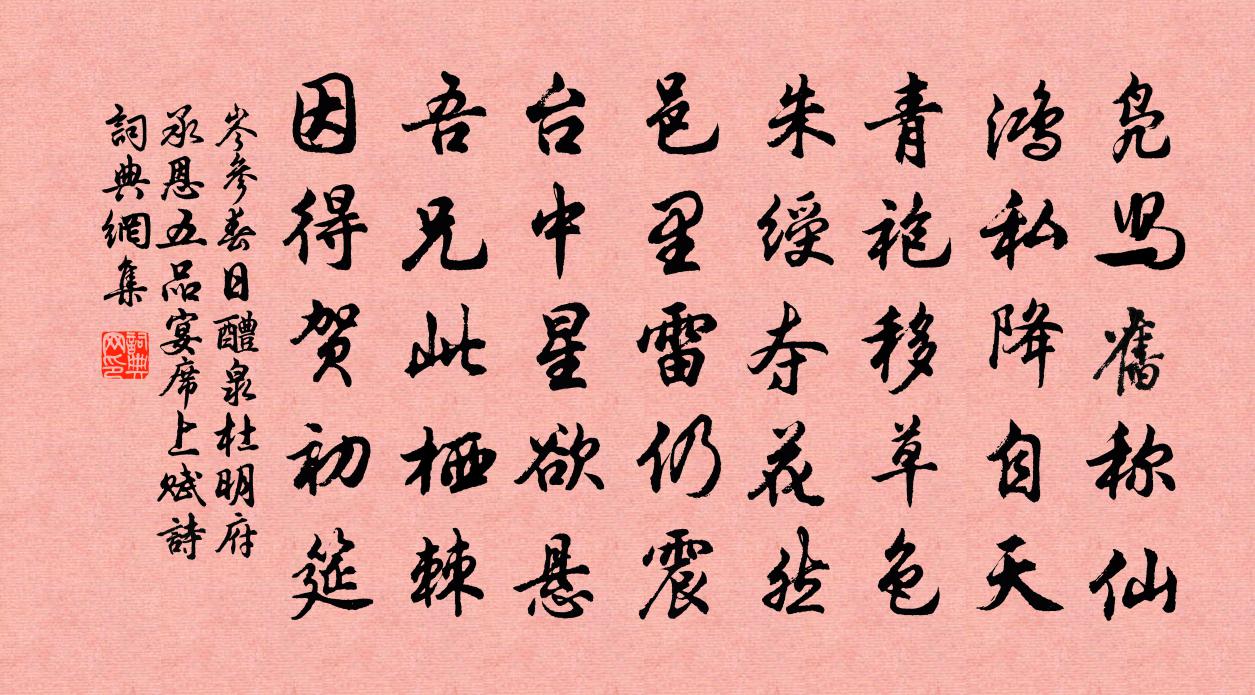 凫舄舊称仙
鸿私降自天
青袍移草色
朱綬夺花然
邑里雷仍震
台中星欲悬
吾兄此栖棘
因得贺初筵
岑參春日醴泉杜明府
承恩五品宴席上赋詩
詞典網集
詞典网印